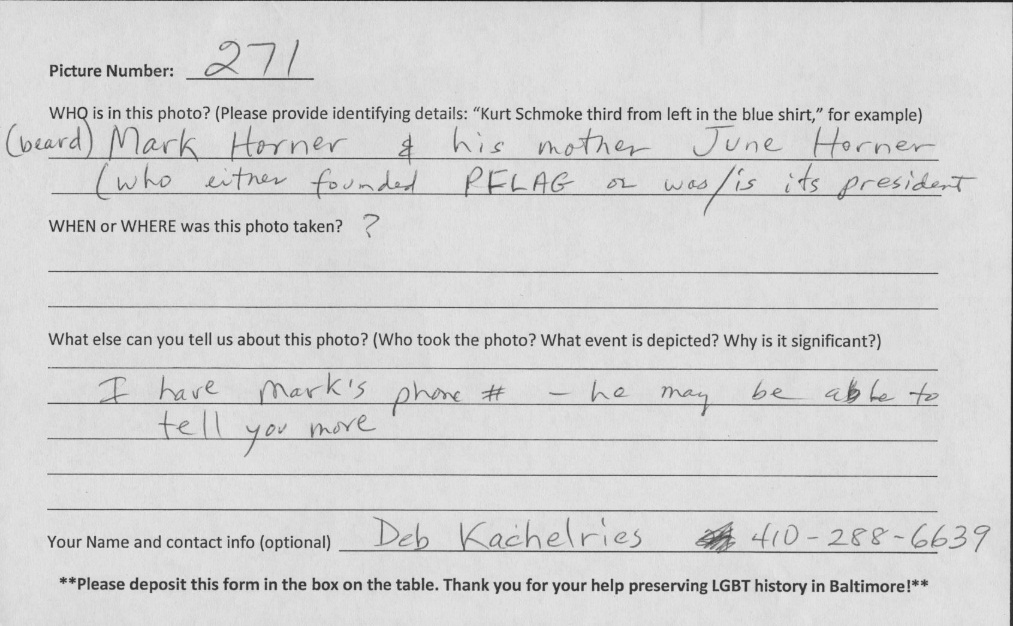 Picture Number: 271
WHO is in this photo? (Please provide identifying details: "Kurt Schmoke third from left in the blue shirt," for example)
(beard) Mark Horner & his mother June Horner
(who either founded PFLAG or was/is its president
WHEN or WHERE was this photo taken? ?
What else can you tell us about this photo? (Who took the photo? What event is depicted? Why is it significant?)
I have Mark's phone # - he may be able to
tell you more
Your Name and contact info (optional) Deb Kachelries 410-288-6639
**Please deposit this form in the box on the table. Thank you for your help preserving LGBT history in Baltimore!**